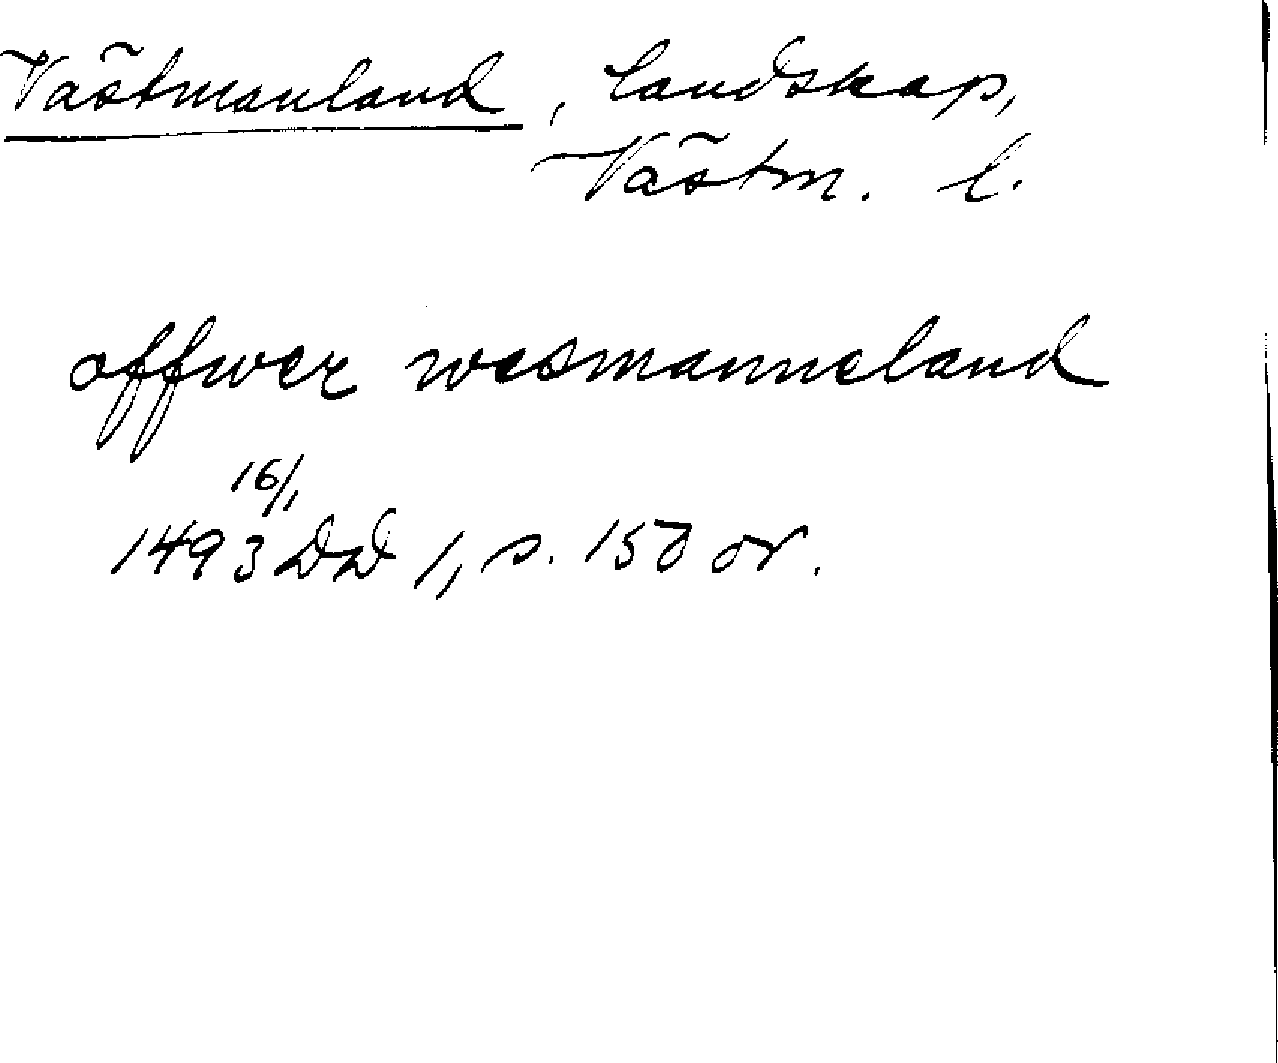 Västmanland, landskap,
Västm. l.
offwer wesmanneland
16/1
1493 DD 1, s. 150 or.